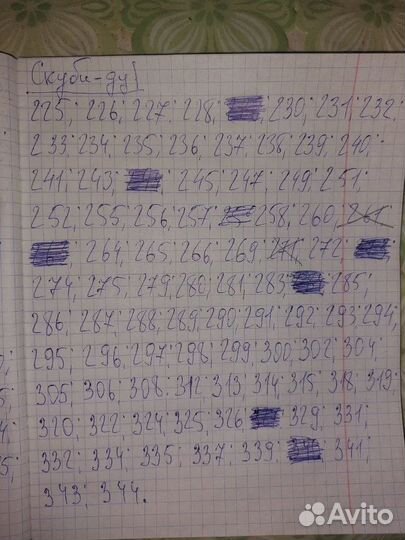 Скуби-ду
225; 226; 227; 228; 230; 231; 232;
233; 234; 235; 236; 237; 238; 239; 240;
241; 243; 245; 247; 249; 251;
252; 255; 256; 257; 258; 260; 261
264; 265; 266; 269; 271; 272;
274; 275; 279; 280; 281; 283; 285;
286; 287; 288; 289; 290; 291; 292; 293; 294;
295; 296; 297; 298; 299; 300; 302; 304;
305; 306; 308; 312; 313; 314; 315; 318; 319;
320; 322; 324; 325; 326 329; 331;
332; 334; 335; 337; 339; 341;
343; 344.
Avito